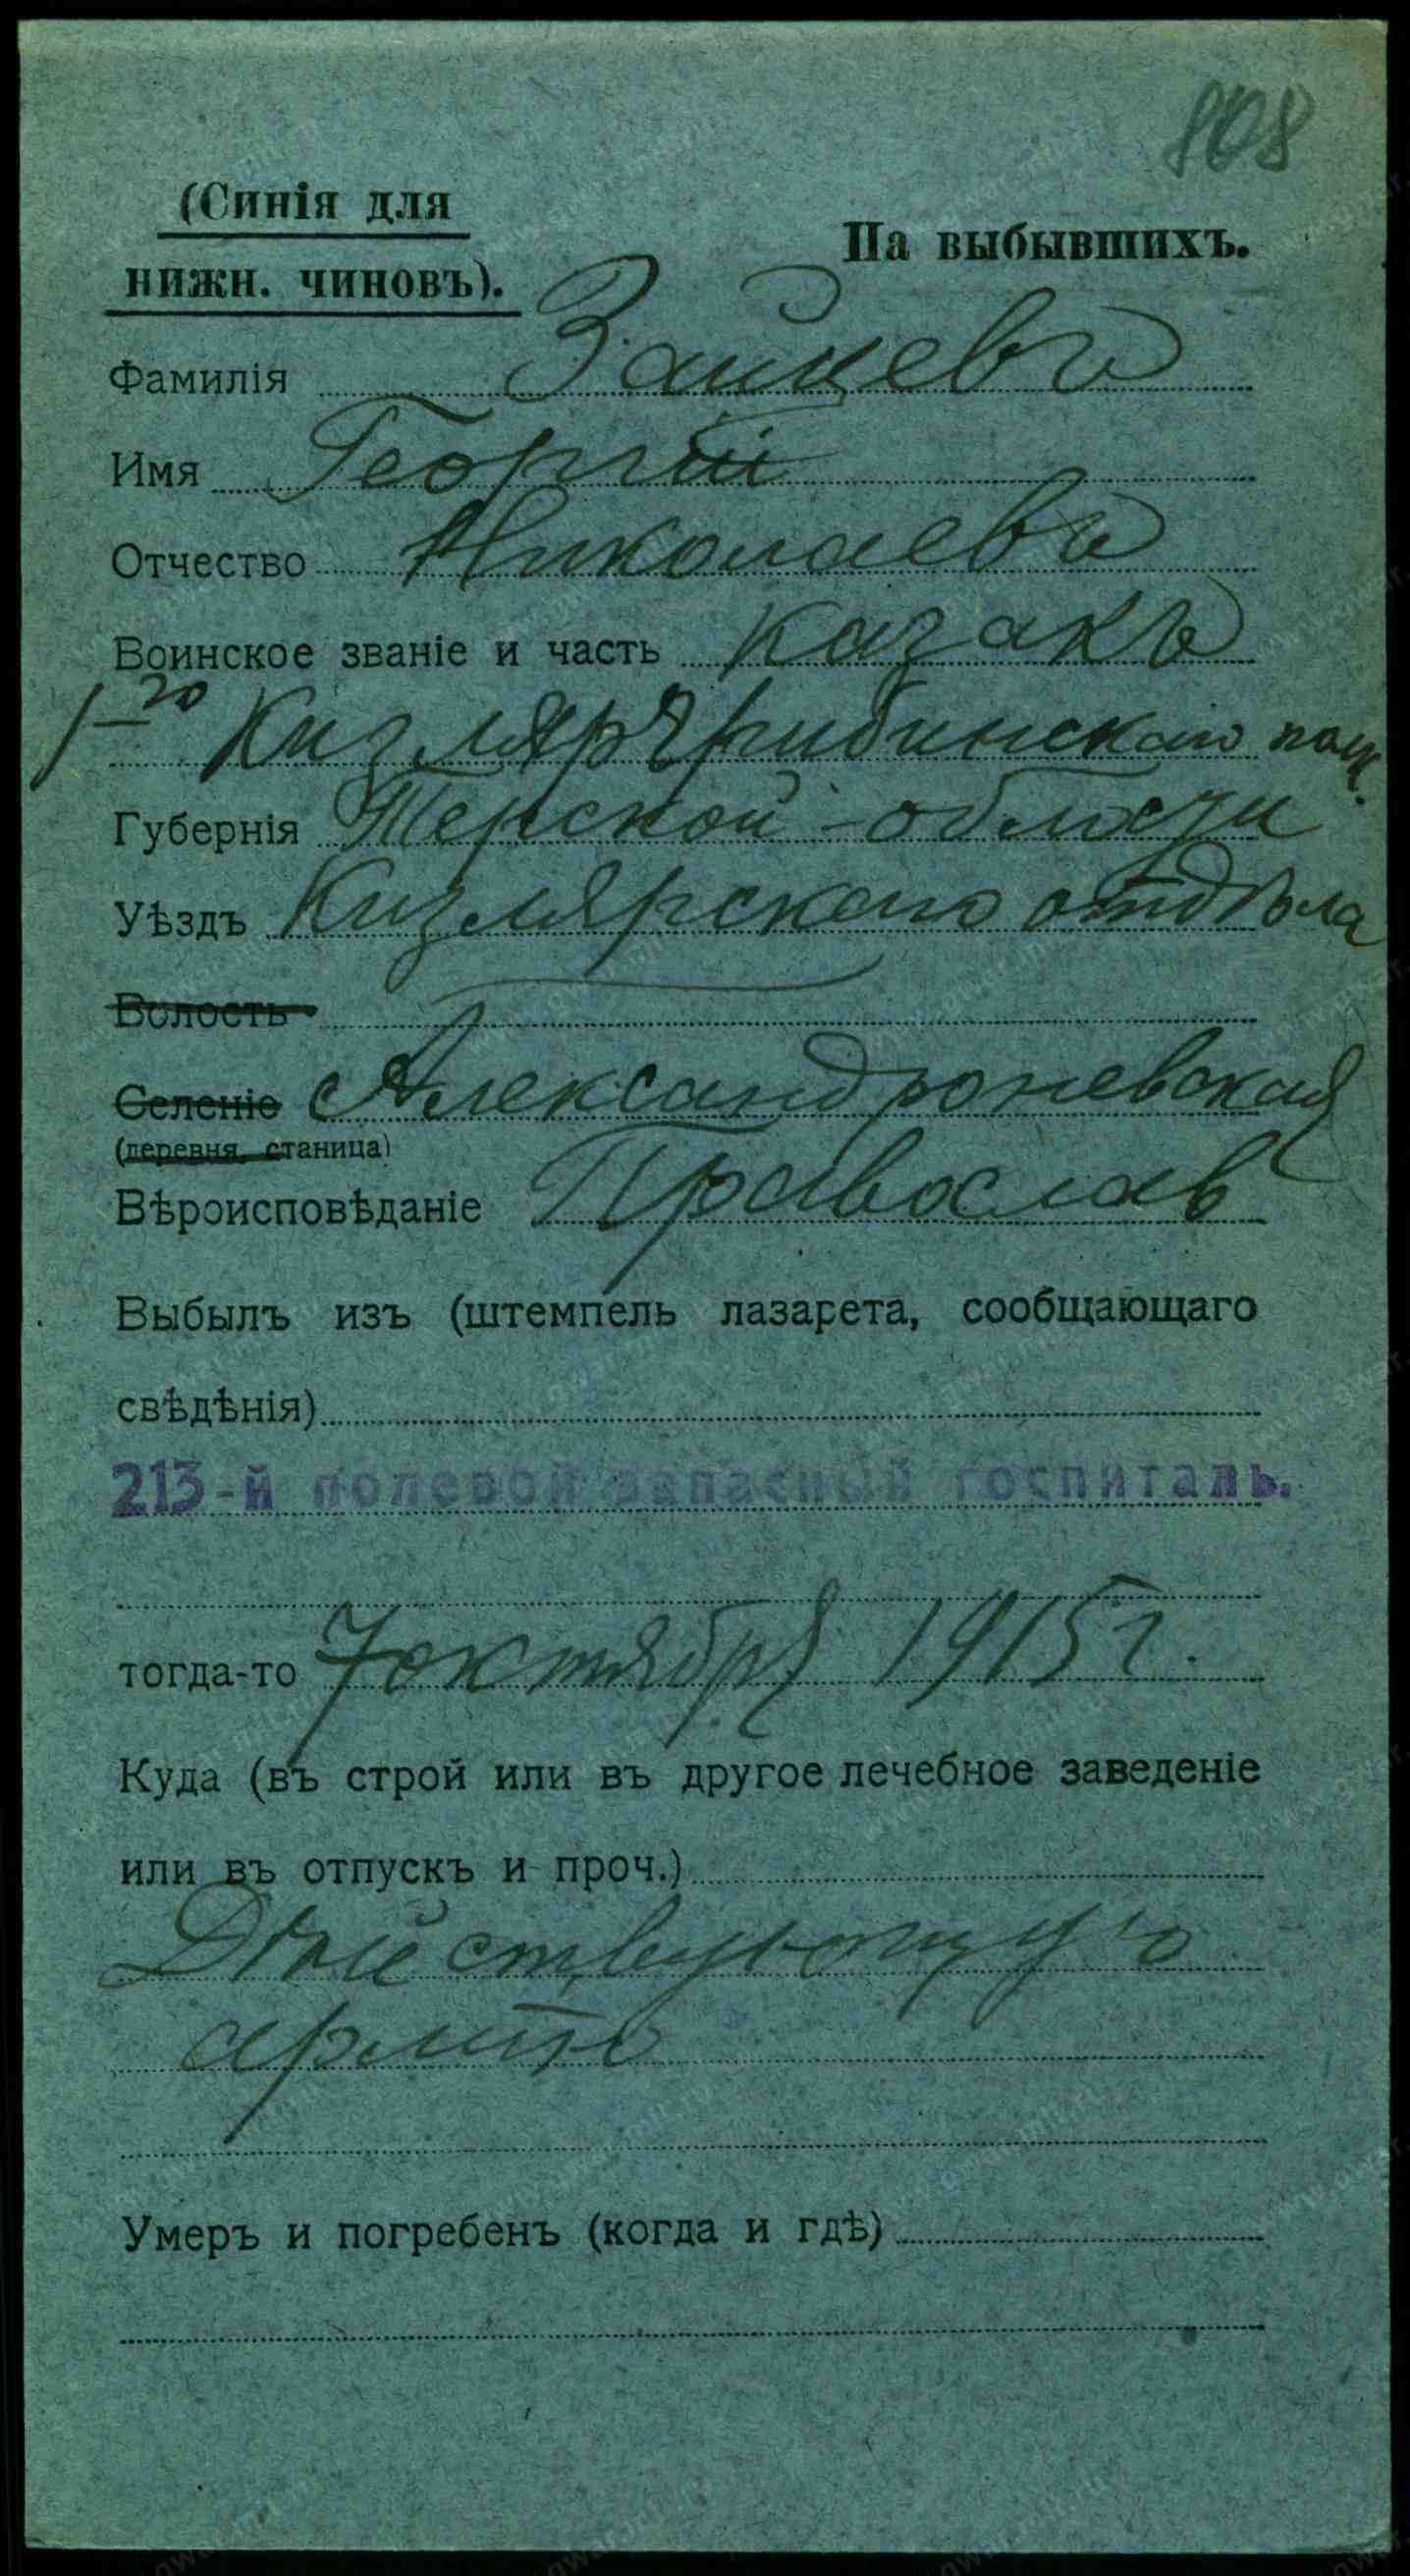 808
(Синія для
На выбывшихъ.
нижн. чиновъ).
Фамилія Зайцевъ
Имя Георгій
Отчество Николаевъ
Воинское званіе и часть казакъ
1-го Кизляро Гребинскаго полк.
Губернія Терской области
Уѣздъ Кизлярскаго отдѣла
Волость
Селеніе Александроневская
(деревня, станица)
Вѣроисповѣданіе Православ
Выбылъ изъ (штемпель лазарета, сообщающаго
свѣдѣнія)
213-й полевой запасный госпиталь.
тогда-то 7 октября 1915 г.
Куда (въ строй или въ другое лечебное заведеніе
или въ отпускъ и проч.)
Дѣйствующую
армію
Умеръ и погребенъ (когда и гдѣ)